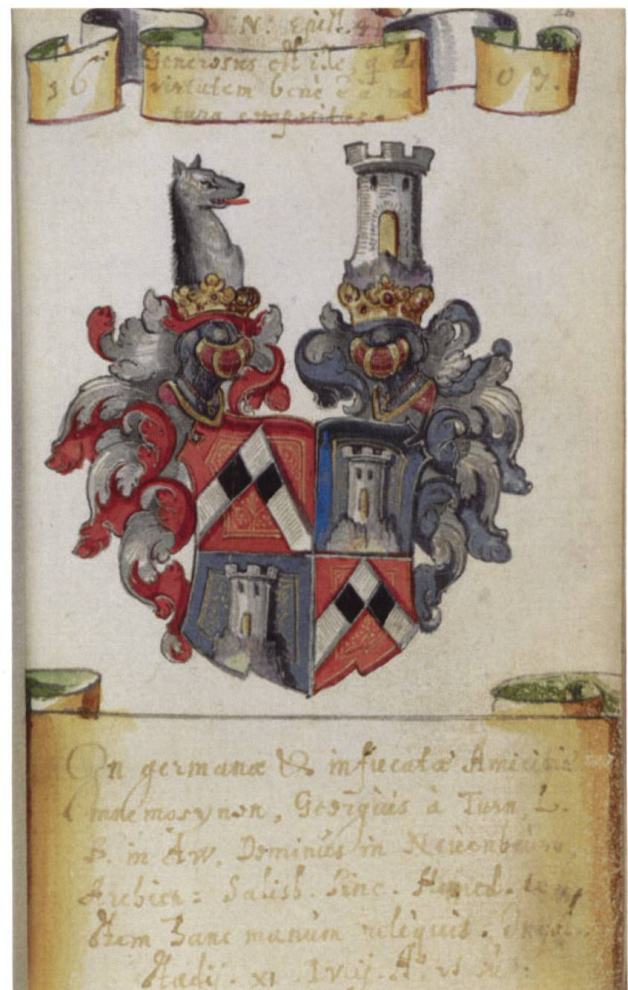 SEN: Epist. 4
16 07.
Generosus est ille, q̨ ad
virtutem benè è a na
tura compositus.
In germanæ & infucatæ Amicitiæ
mnemosynon, Georgius à Turn, L.
B. in Aw, Dominus in Neüenbeürn,
Archiep: Salisb. Pinc. Hæred.
item hanc manum reliquit.
stadij. xi. Iulij. Aº. vt